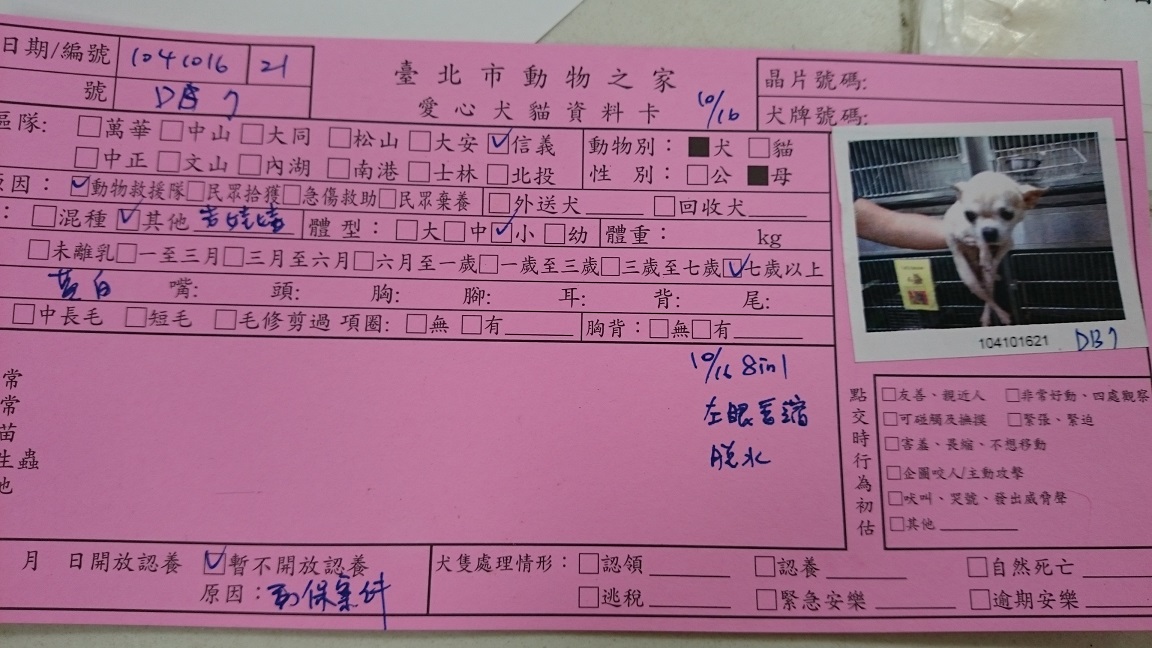 日期/編號 1041016 21
號 DB7
臺北市動物之家
愛心犬貓資料卡 10/16
晶片號碼:
犬牌號碼:
區隊: □萬華□中山□大同 □松山□大安☑信義
□中正□文山□內湖 □南港□士林□北投
動物別：■犬 □貓
性 別：□公 ■母
原因：☑動物救援隊□民眾拾獲□急傷救助□民眾棄養 □外送犬 □回收犬
: □混種☑其他 吉娃娃 體型：□大□中☑小□幼 體重： kg
□未離乳□一至三月□三月至六月□六月至一歲□一歲至三歲□三歲至七歲☑七歲以上
黃白 嘴: 頭: 胸: 腳: 耳: 背: 尾:
□中長毛 □短毛 □毛修剪過 項圈: □無 □有 胸背: □無□有
104101621 DB7
10/16 8in1
左眼 縮
脫水
常
常
苗
生蟲
他
點交時行為初估
□友善、親近人 □非常好動、四處觀察
□可碰觸及撫摸 □緊張、緊迫
□害羞、畏縮、不想移動
□企圖咬人/主動攻擊
□吠叫、哭號、發出威脅聲
□其他
月 日開放認養 ☑暫不開放認養
原因：動保案件
犬隻處理情形：□認領 □認養 □自然死亡
□逃稅 □緊急安樂 □逾期安樂